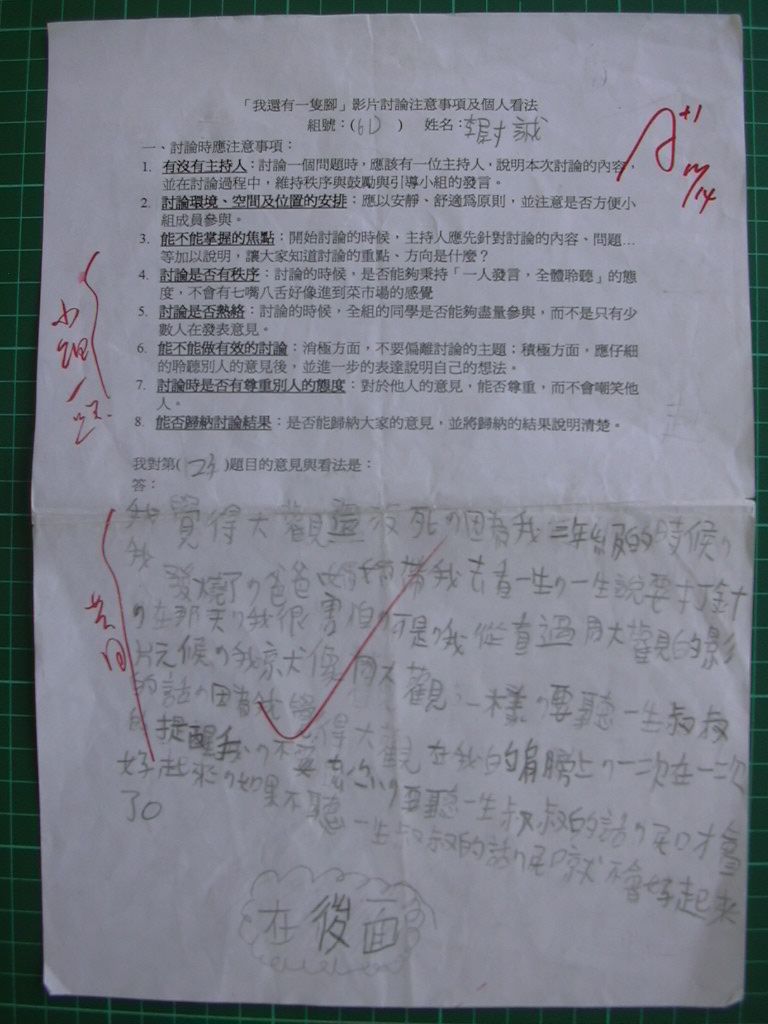 「我還有一隻腳」影片討論注意事項及個人看法
組號：(61)　)　姓名：誠
一、討論時應注意事項：
1. 有沒有主持人：討論一個問題時，應該有一位主持人，說明本次討論的內容，
並在討論過程中，維持秩序與鼓勵與引導小組的發言。
2. 討論環境、空間及位置的安排：應以安靜、舒適為原則，並注意是否方便小
組成員參與。
3. 能不能掌握的焦點：開始討論的時候，主持人應先針對討論的內容、問題…
等加以說明，讓大家知道討論的重點、方向是什麼？
4. 討論是否有秩序：討論的時候，是否能夠秉持「一人發言，全體聆聽」的態
度，不會有七嘴八舌好像進到菜市場的感覺
5. 討論是否熱絡：討論的時候，全組的同學是否能夠盡量參與，而不是只有少
數人在發表意見。
6. 能不能做有效的討論：消極方面，不要偏離討論的主題；積極方面，應仔細
的聆聽別人的意見後，並進一步的表達說明自己的想法。
7. 討論時是否有尊重別人的態度：對於他人的意見，能否尊重，而不會嘲笑他
人。
8. 能否歸納討論結果：是否能歸納大家的意見，並將歸納的結果說明清楚。
A+1
12/14
小組一起
我對第()題目的意見與看法是：
答：
我覺得大觀還沒死，因為我三年級的時候，
我發燒了，爸爸媽媽帶我去看一生，一生說要打針
，在那天，我很害怕，可是，我從看過周大觀的影
片元候，我就像周大觀，一樣，要聽一生叔叔
的話，因為我覺得大觀在我的肩膀上，一次在一次
的提醒我，不要，要聽一生叔叔的話，才會
好起來，如果不聽一生叔叔的話，就不會好起來
了。
在後面